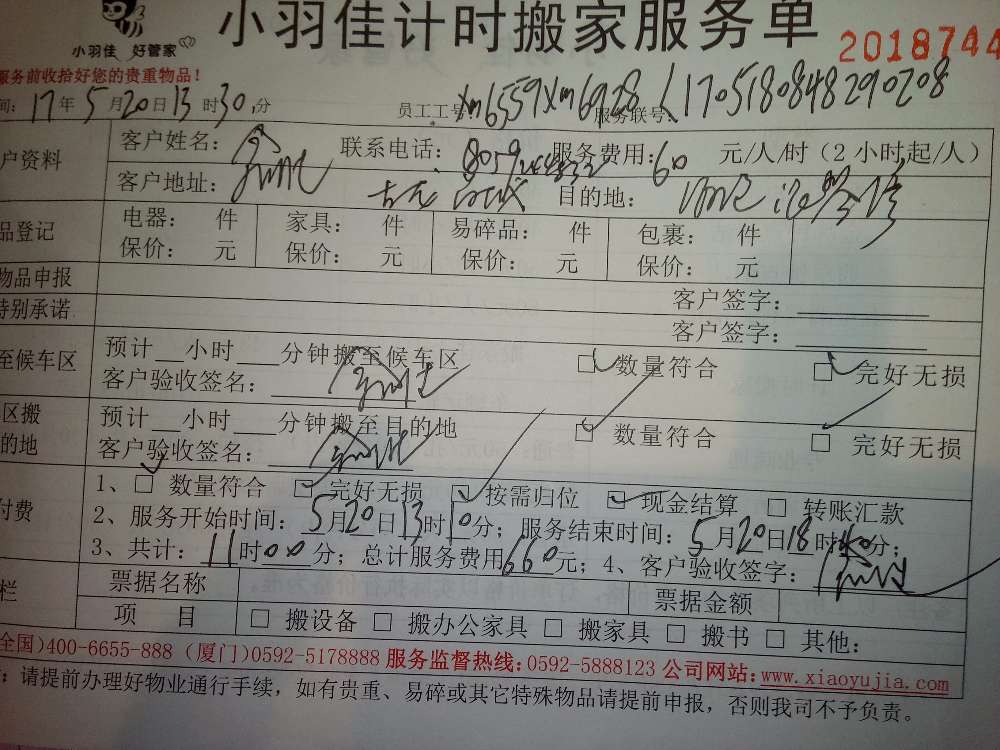 小羽佳 好管家
小羽佳计时搬家服务单
2018744
服务前收拾好您的贵重物品！
间：17年5月20日13时30分 员工工号：xm6559xm6928 服务联号：1705180848290208
户资料 客户姓名： 联系电话： 服务费用：60 元/人/时（2小时起/人）
客户地址： 目的地：
品登记 电器： 件 家具： 件 易碎品： 件 包裹： 件
保价： 元 保价： 元 保价： 元 保价： 元
物品申报 客户签字：
特别承诺 客户签字：
至候车区 预计__小时___分钟搬至候车区 □ 数量符合 □ 完好无损
客户验收签名：
区搬 预计__小时___分钟搬至目的地 □ 数量符合 □ 完好无损
的地 客户验收签名：
付费 1、□ 数量符合 □ 完好无损 □ 按需归位 □ 现金结算 □ 转账汇款
2、服务开始时间：5月20日13时10分；服务结束时间：5月20日18时40分；
3、共计：11时00分；总计服务费用660元；4、客户验收签字：
栏 票据名称 票据金额
项 目 □ 搬设备 □ 搬办公家具 □ 搬家具 □ 搬书 □ 其他：
全国)400-6655-888 (厦门)0592-5178888 服务监督热线：0592-5888123 公司网站：www.xiaoyujia.com
：请提前办理好物业通行手续，如有贵重、易碎或其它特殊物品请提前申报，否则我司不予负责。